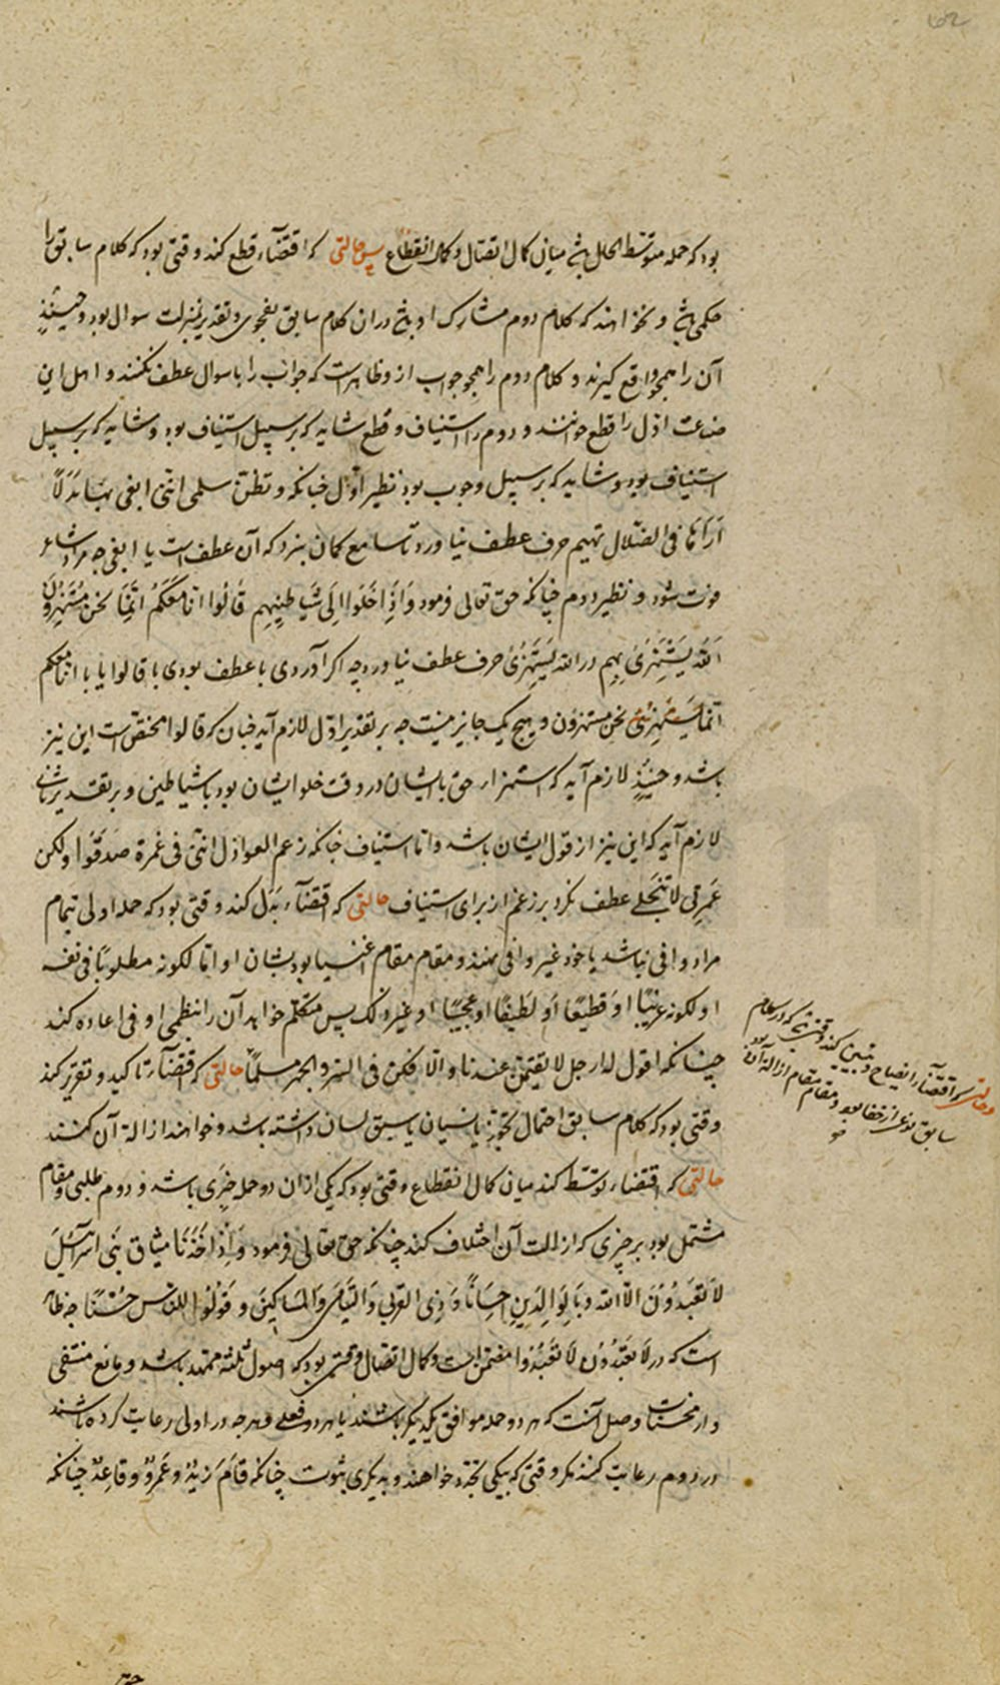 بود که جمله متوسط الحال باشد میان کمال اتصال و کمال انقطاع پس حالتی که اقتضاء قطع کند وقتی بود که کلام سابق را
حکمی باشد و نخواهند که کلام دوم مشارک او باشد در آن کلام سابق بفحوی و تقدیر بمنزلت سوال بود و حینئذ
آن را همچو واقع گیرند و کلام دوم را همچو جواب از و ظاهرست که جواب را با سوال عطف نکنند و اهل این
صناعت اول را قطع خوانند و دوم را استیناف و قطع شاید که بر سبیل استیناف بود و شاید که بر سبیل
استیناف بود و شاید که بر سبیل وجوب بود نظیر اول چنانکه و تظن سلمی اننی ابغی بها بدلا
اراها فی الضلال تهیم حرف عطف نیاورد تا سامع گمان نبرد که آن عطف است با ابغی چه مراد شاعر
فوت شود و نظیر دوم چنانکه حق تعالی فرمود وَاِذَا خَلَوْا اِلَی شَیَاطِینِهِمْ قَالُوا انا مَعَکُمْ اِنَّمَا نَحْنُ مُسْتَهْزِؤُنَ
اَللهُ یَسْتَهْزِئُ بِهِم در الله یَسْتَهْزِئُ حرف عطف نیاورد چه اگر آوردی با عطف بودی با قالوا یا با انا معکم
انما نحن مستهزؤن و هیچ یک جایز نیست چه بر تقدیر اول لازم آید چنان که قالوا مختص است این نیز
باشد و حینئذ لازم آید که استهزاء حق با ایشان در وقت خلو ایشان بود با شیاطین و بر تقدیر ثانی
لازم آید که این نیز از قول ایشان باشد و اما استیناف چنانکه زعم العواذل اننی فی غمرة صَدَقُوا ولکن
غمرتی لا تنجلی عطف نکرد بر زعم از برای استیناف حالتی که اقتضاء بَدَل کند وقتی بود که جمله اولی بتمام
مراد وافی نباشد یا خود غیر وافی بود و مقام مقام اعتنا بود بشان او اما لکونه مطلوبًا فی نفسه
او لکونه غریبًا او فظیعًا او لطیفًا او عجیبًا او غیر ذلک پس متکلم خواهد آن را بنظمی اوفی اعاده کند
چنانکه اقول له ارحل لا تقیمن عندنا والا فکن فی السر والجهر مسلمًا حالتی که اقتضاء تاکید و تقریر کند
وقتی بود که کلام سابق احتمال تجوز یا نسیان یا سبق لسان داشته باشد و خواهند ازالهٔ آن کنند
حالتی که اقتضاء توسط کند میان کمال انقطاع وقتی بود که یکی از آن دو جمله خبری باشد و دوم طلبی و مقام
مشتمل بود بر چیزی که ازالت آن اختلاف کند چنانکه حق تعالی فرمود وَاِذْ اَخَذْنَا میثاق بَنی اسرائیلَ
لا تَعْبُدُونَ الا الله وَبِالوَالِدَیْنِ اِحْسَانًا وَذِی القُربی وَالیَتَامی وَالمَسَاکِینِ وَقُولُوا لِلنَّاسِ حُسْنًا چه ظاهر
است که در لا تَعْبُدُونَ لا تَعْبُدُوا مضمن است و کمال اتصال وقتی بود که اصول ثلثه ممهد باشد و مانع منتفی
و از محسنات وصل آنست که هر دو جمله موافق یکدیگر باشند یا هر دو فعلی و هرچه در اولی رعایت کرده باشند
در دوم رعایت کنند مگر وقتی که بیکی تجدد خواهند و بدیگری ثبوت چنانکه قَامَ زَیْدٌ وعَمْروٌ وقاعِدٌ چنانکه
وحالتی که اقتضاء ایضاح و تبیین کند وقتی باشد که در کلام
سابق نوعی از خفا بود و مقام مقام ازالهٔ آن بود